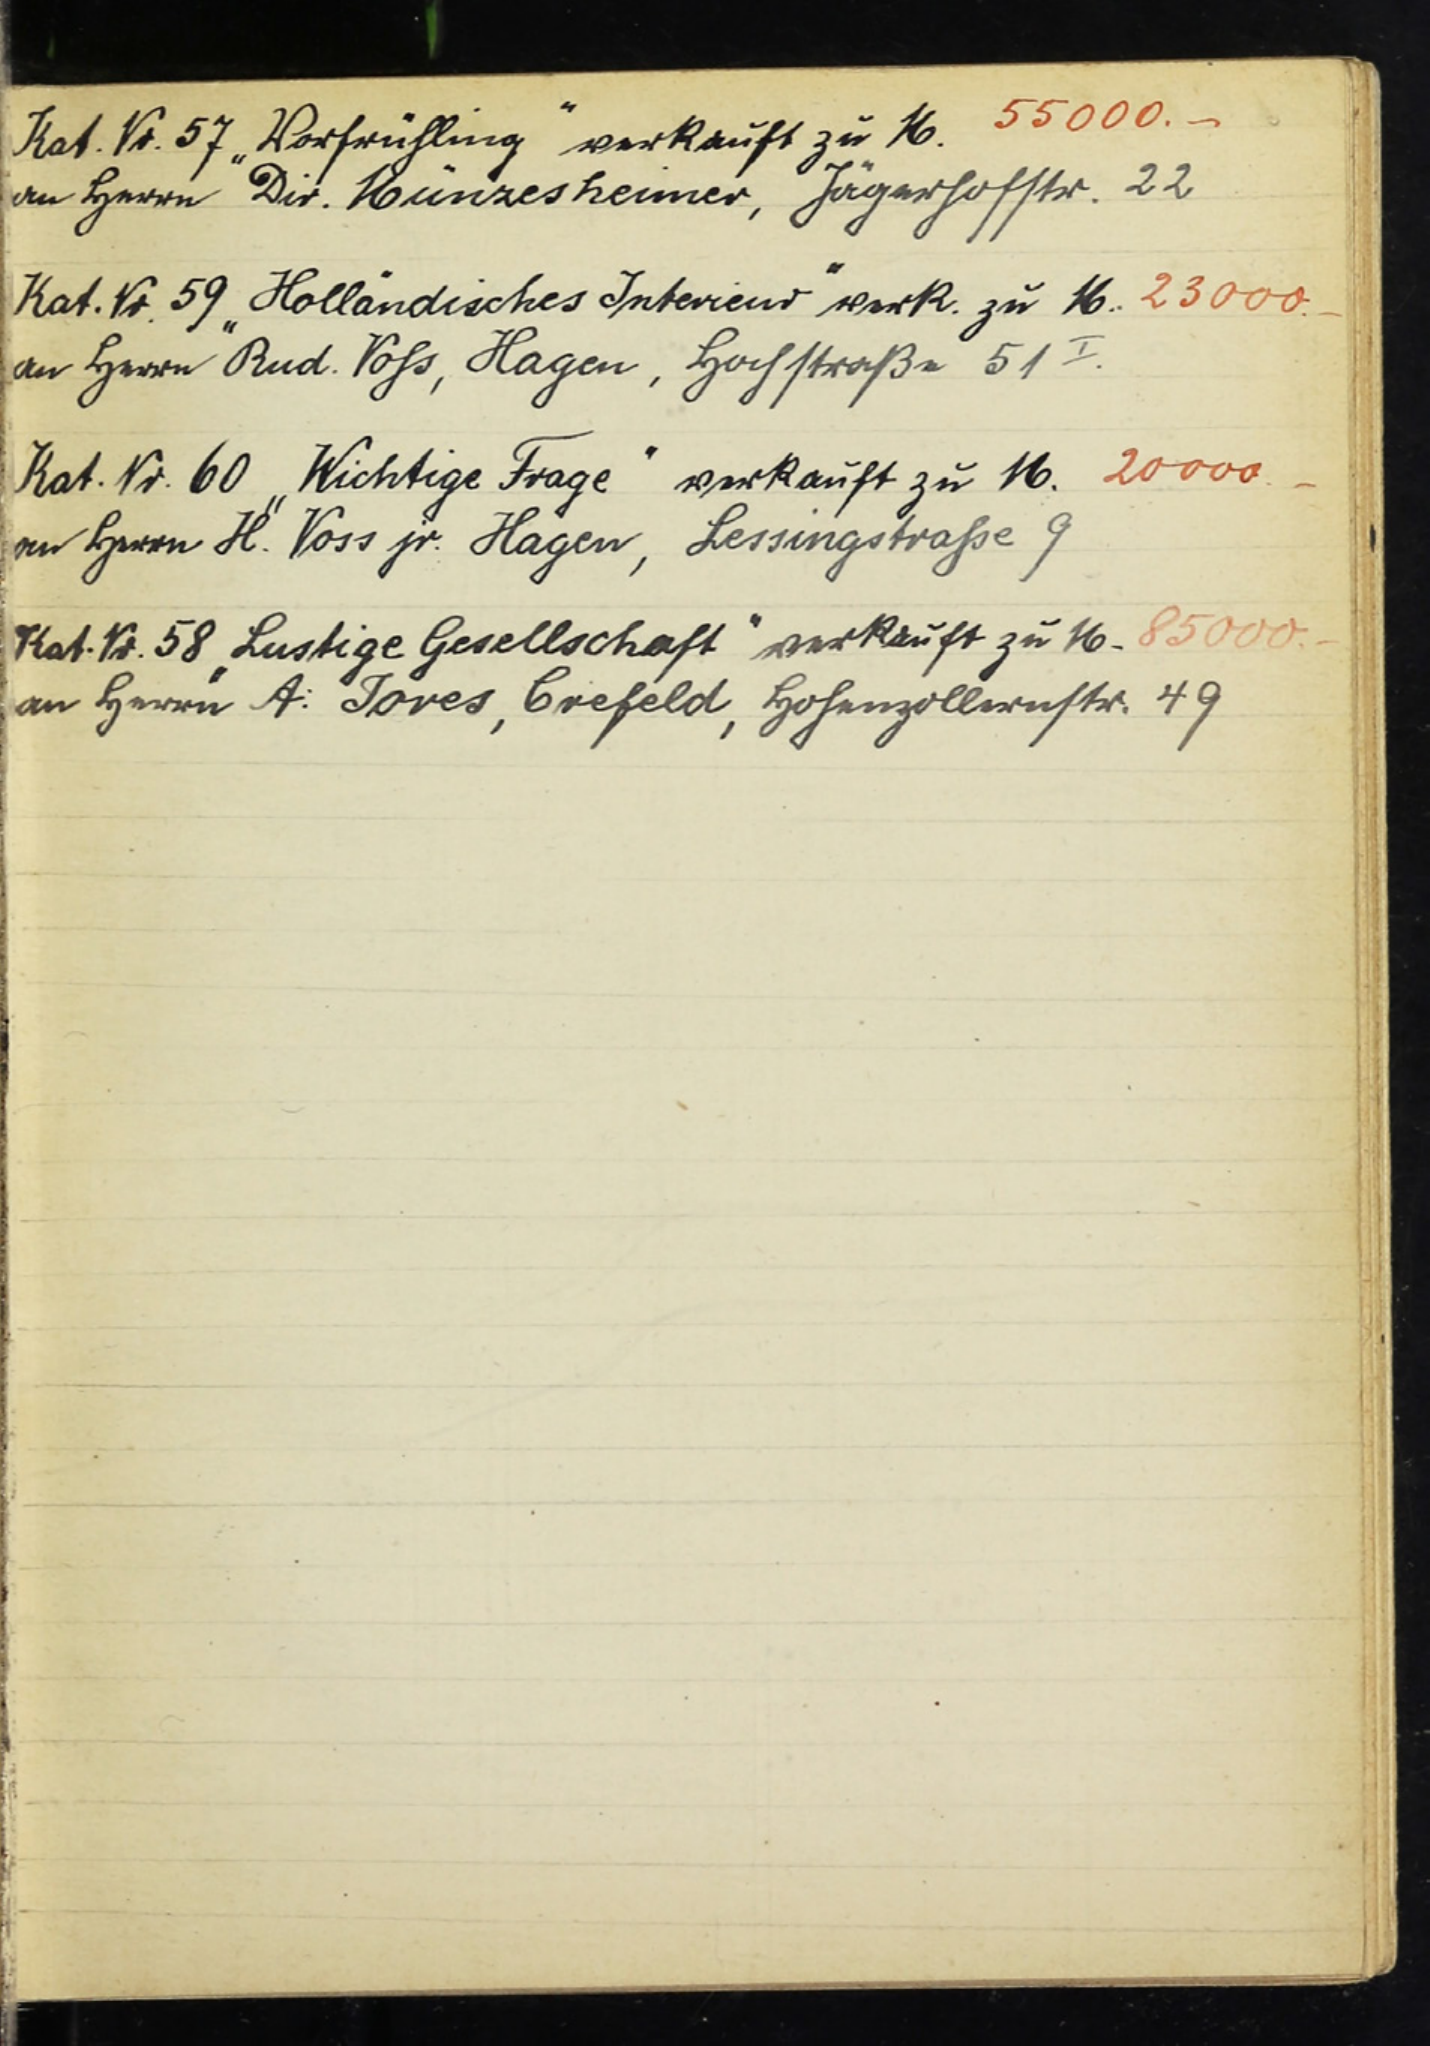 Kat. Nr. 57 „Vorfrühling“ verkauft zu M. 55000.-
an Herrn Dir. Münzesheimer, Jägerhofstr. 22
Kat. Nr. 59 „Holländisches Interieur“ verk. zu M. 23000.-
an Herrn Rud. Voss, Hagen, Hochstraße 51 I.
Kat. Nr. 60 „Wichtige Frage“ verkauft zu M. 20000.-
an Herrn H. Voss jr. Hagen, Lessingstrasse 9
Kat. Nr. 58 „Lustige Gesellschaft“ verkauft zu M. 85000.-
an Herrn A. Jores, Crefeld, Hohenzollernstr. 49